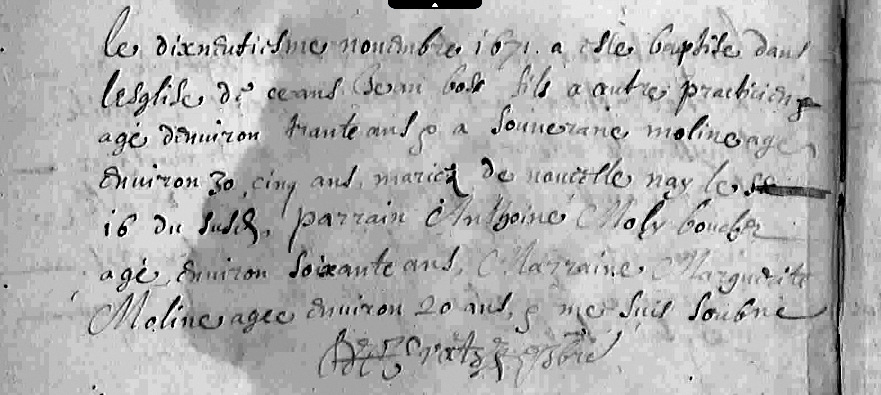 le dixneufiesme nouembre 1671. a esté baptisé dans
lesglise de ceans Jean bosc fils a autre practicien
agé denuiron trante ans & a souuerane moline agee
enuiron 30 cinq ans mariez de nay le
16 du susd. parrain Anthoine Moly boucher
agé enuiron soixante ans, Marraine Marguerite
Moline agee enuiron 20 ans, & me suis soubné